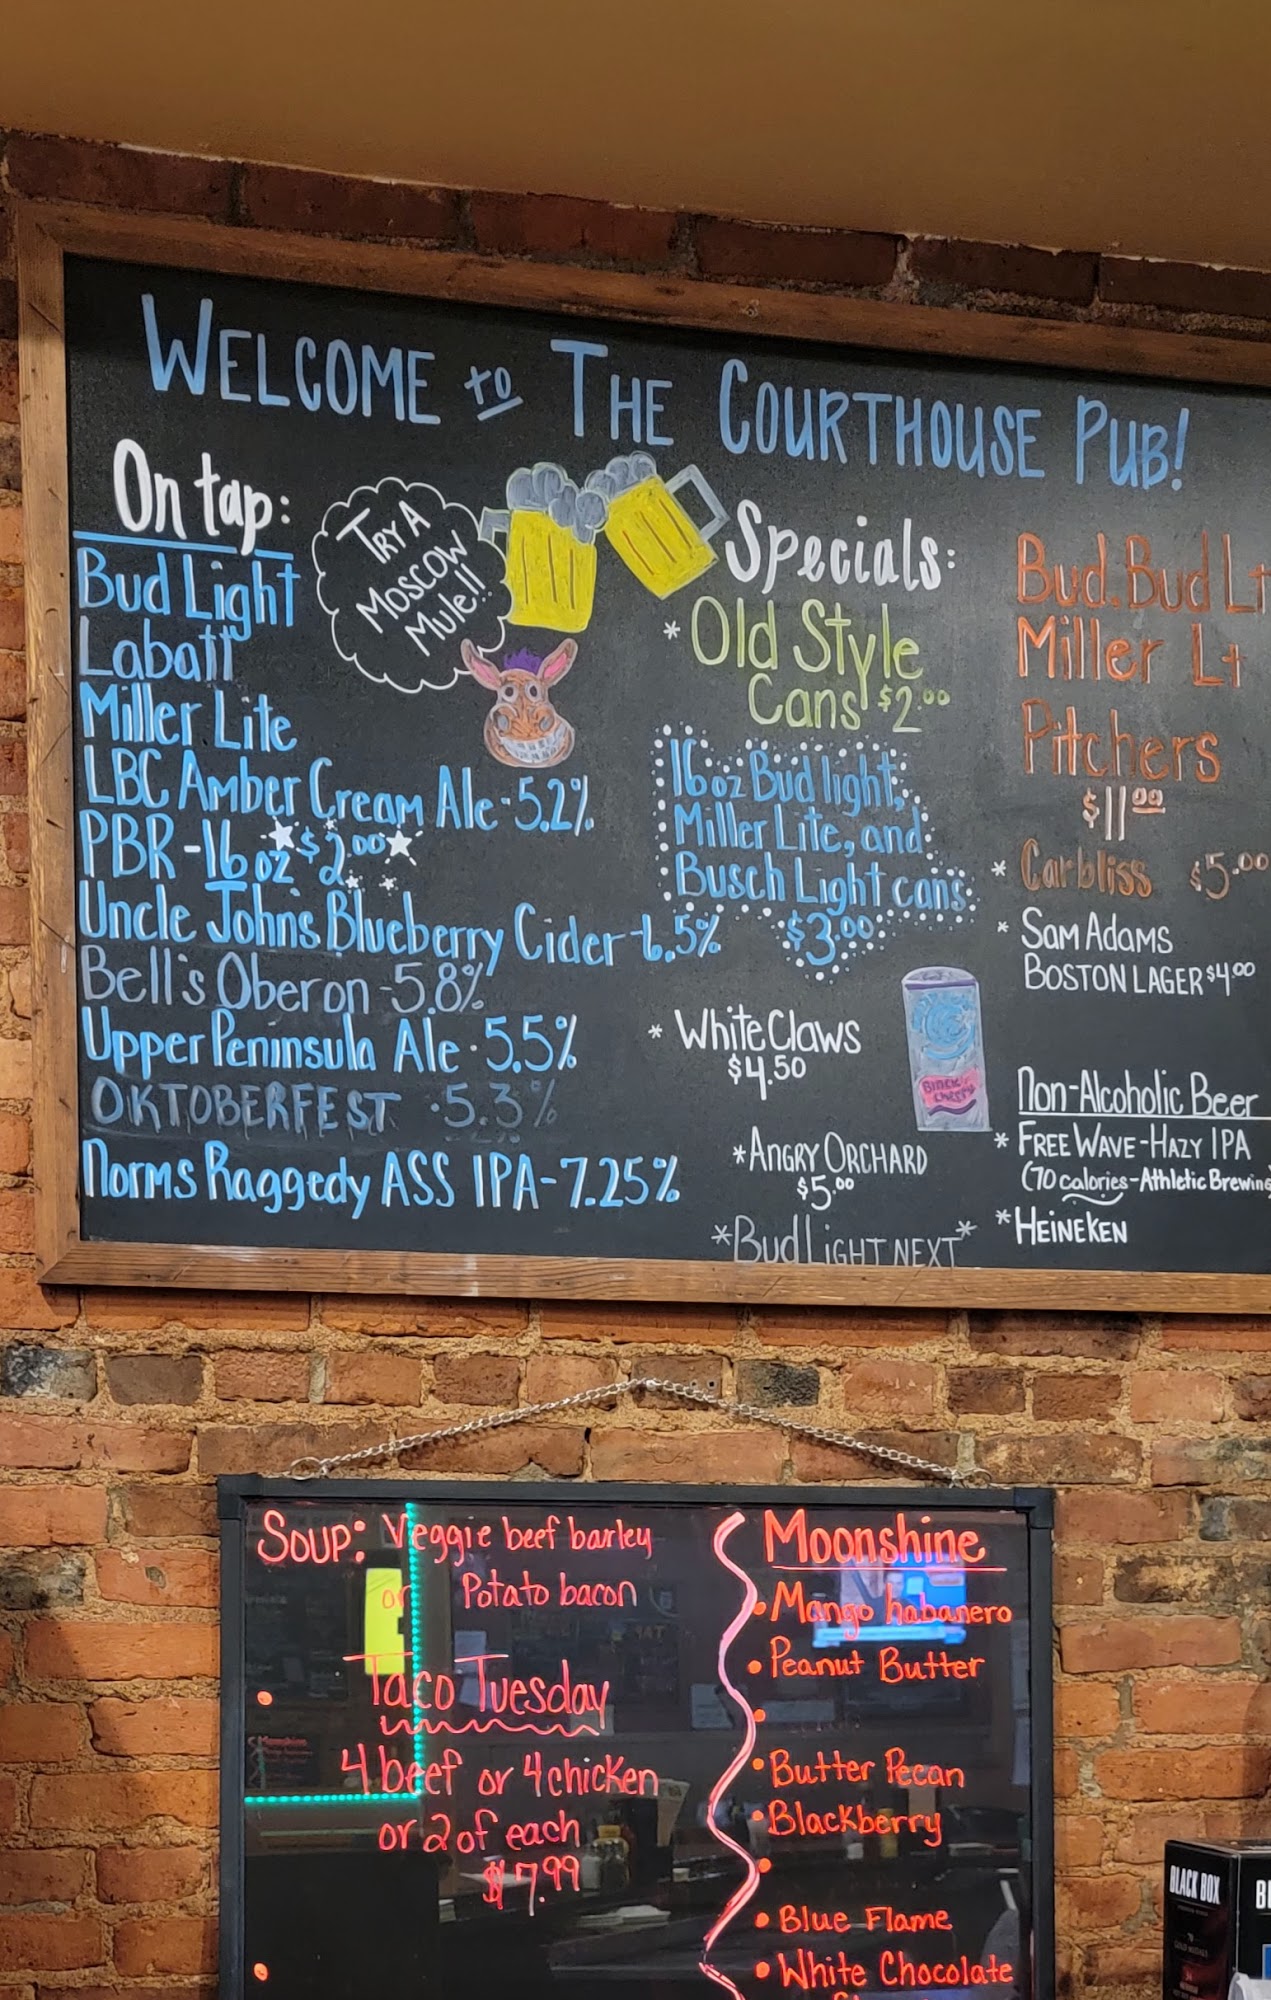 WELCOME to THE COURTHOUSE PUB!
On tap:
Bud Light
Labatt
Miller Lite
LBC Amber Cream Ale - 5.2%
PBR - 16 oz $2.00
Uncle John's Blueberry Cider - 6.5%
Bell's Oberon - 5.8%
Upper Peninsula Ale - 5.5%
OKTOBERFEST - 5.3%
Norms Raggedy ASS IPA - 7.25%
TRY A
MOSCOW
Mule!!
Specials:
* Old Style
Cans $2.00
16 oz Bud light,
Miller Lite, and
Busch Light cans
$3.00
* White Claws
$4.50
BLACK
CHERRY
* ANGRY ORCHARD
$5.00
*Bud LIGHT NEXT*
Bud. Bud Lt
Miller Lt
Pitchers
$11.00
* Carbliss $5.00
* SAM ADAMS
BOSTON LAGER $4.00
Non-Alcoholic Beer
* FREE WAVE - HAZY IPA
(70 calories - Athletic Brewing
* HEINEKEN
SOUP: Veggie beef barley
or Potato bacon
• Taco Tuesday
4 beef or 4 chicken
or 2 of each
$7.99
•
Moonshine
• Mango habanero
• Peanut Butter
•
• Butter Pecan
• Blackberry
•
• Blue Flame
• White Chocolate
BLACK BOX